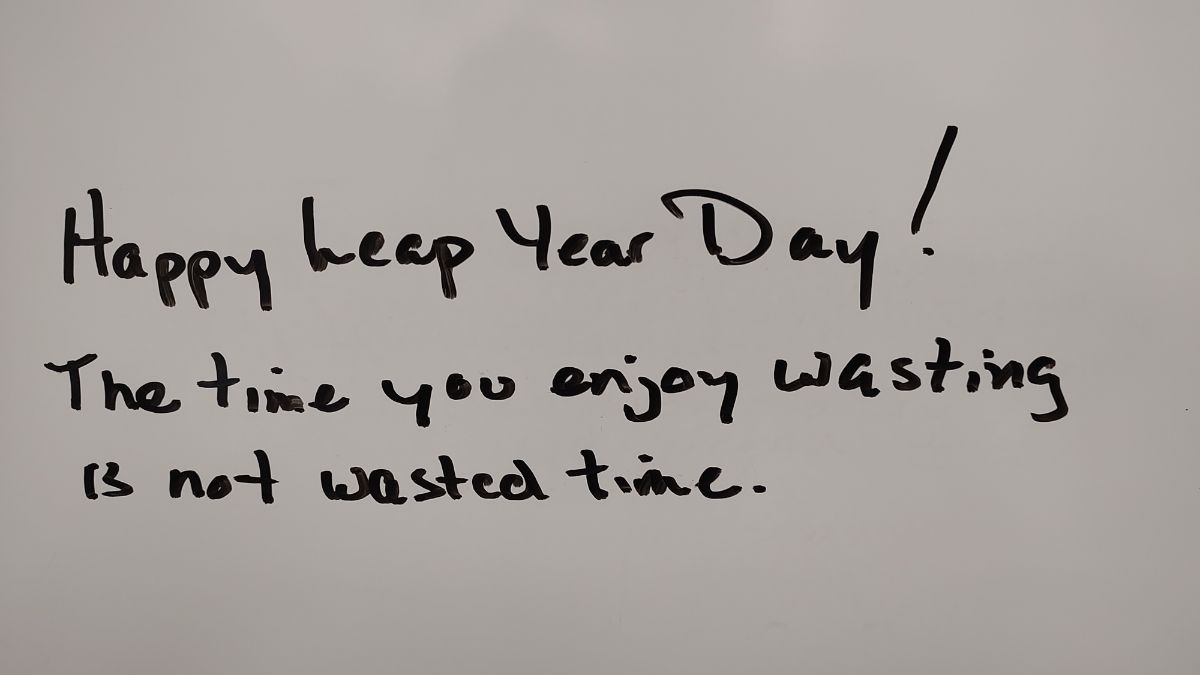 Happy Leap Year Day!
The time you enjoy wasting
is not wasted time.